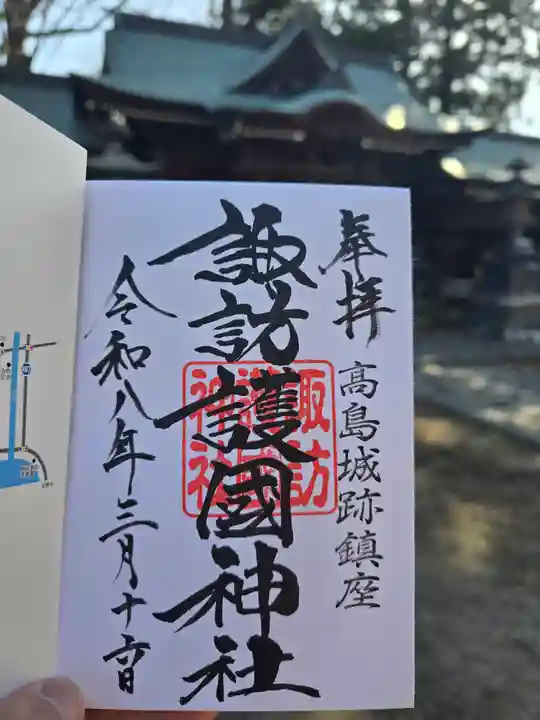 奉拝
高島城跡鎮座
諏訪護國神社
諏訪
護國
神社
令和八年三月十六日